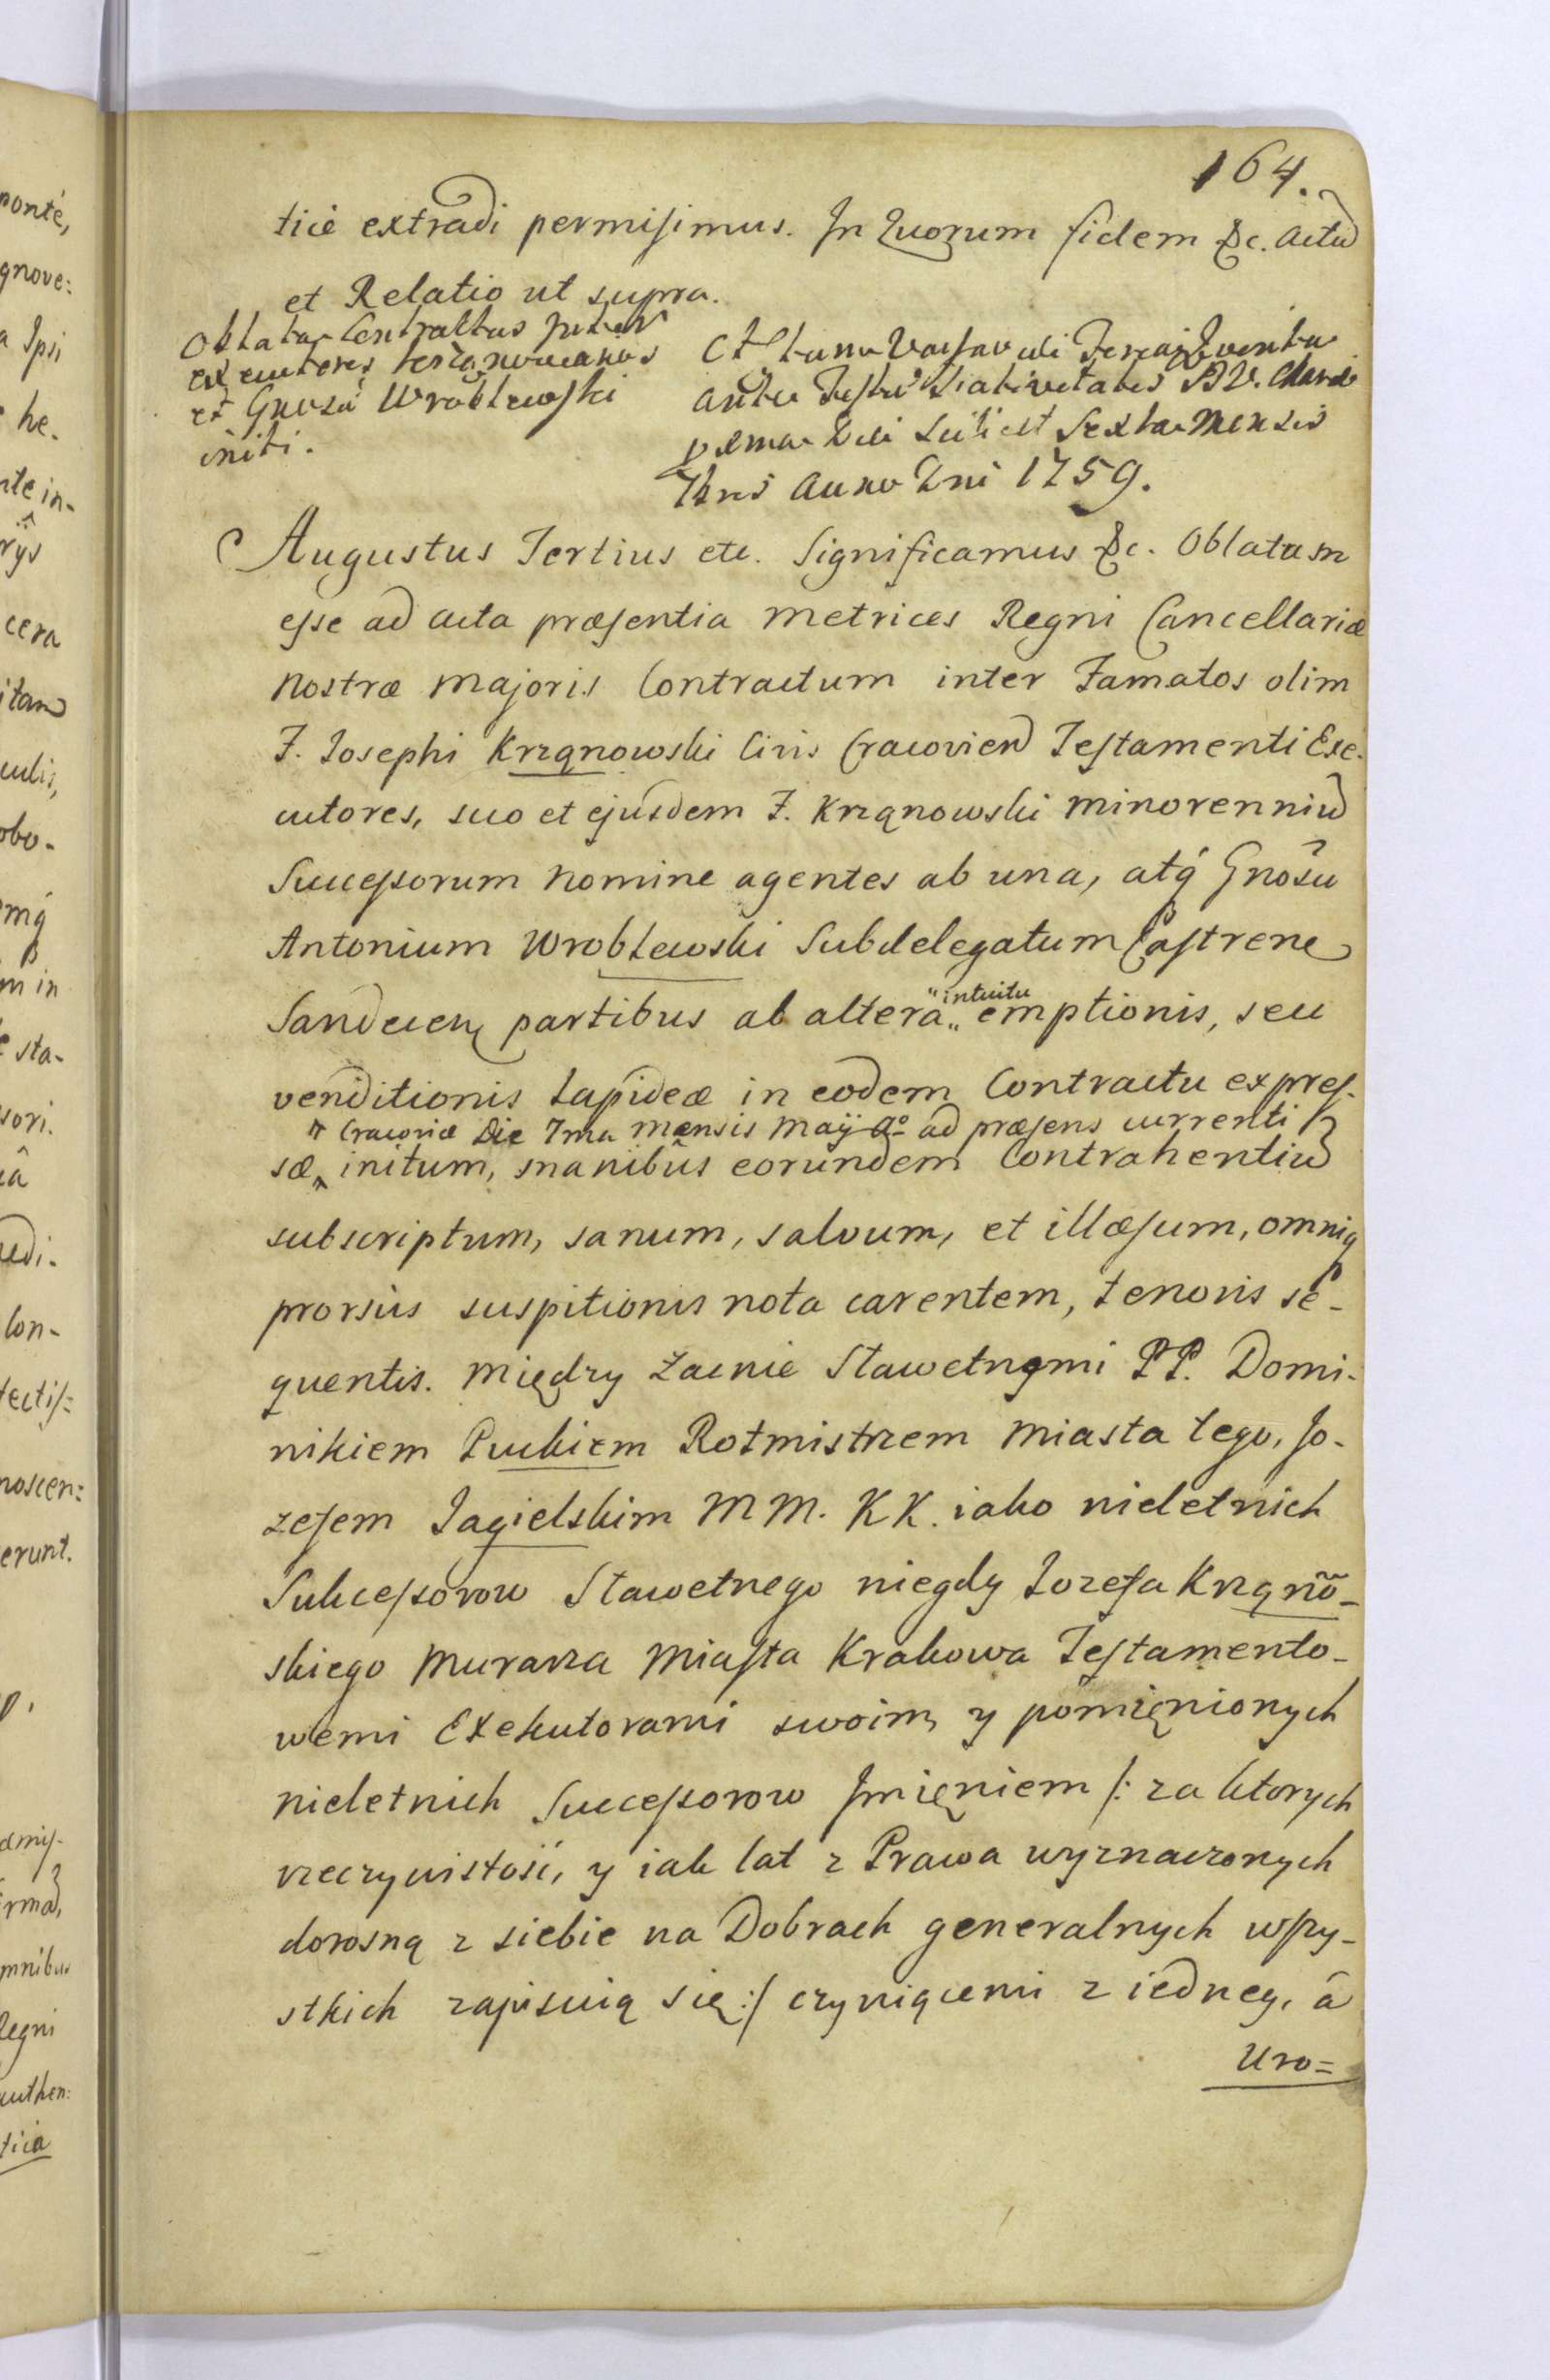 164.
tice extradi permisimus. In Quorum fidem &c. Actũ
et Relatio ut supra.
Oblata Contractus inter
executores Krząnowianos
et Gnosũ Wroblewski
initi.
Actum Varsaviæ Feria Quinta
ante Festũ Nativitatis B.V. Mariæ
pxma Die scilicet Sexta Mensis
7bris Anno Dni 1759.
Augustus Tertius etc. Significamus &c. Oblatum
esse ad acta præsentia Metrices Regni Cancellariæ
Nostræ Majoris Contractum inter Famatos olim
F. Josephi Krząnowski Civis Cracovien Testamenti Exe-
cutores, suo et ejusdem F. Krząnowski minorenniũ
Successorum nomine agentes ab una, atq́ Gnosũ
Antonium Wroblewski Subdelegatum Castrene
Sandecen partibus ab altera "intuitu" emptionis, seu
venditionis Lapideæ in eodem Contractu expres-
Cracoviæ Die 7ma Mensis Maÿ Ao ad præsens currenti
sæ, initum, manibus eorundem Contrahentiũ
subscriptum, sanum, salvum, et illæsum, omniq
prorsus suspitionis nota carentem, tenoris se-
quentis. Między Zacnie Sławetnymi PP. Domi-
nikiem Puckiem Rotmistrzem Miasta tego, Jo-
zefem Jagielskim MM. KK. iako nieletnich
Sukcessorow Sławetnego niegdy Jozefa Krząnõ-
skiego Murarza Miasta Krakowa Testamento-
wemi Exekutorami swoim y pomięnionych
nieletnich Successorow Jmięniem /: za ktorych
rzeczywistość, y iak lat z Prawa wyznaczonych
dorosną z siebie na Dobrach generalnych wszy-
stkich zapisuią się :/ czyniącemi z iedney, â
Uro=